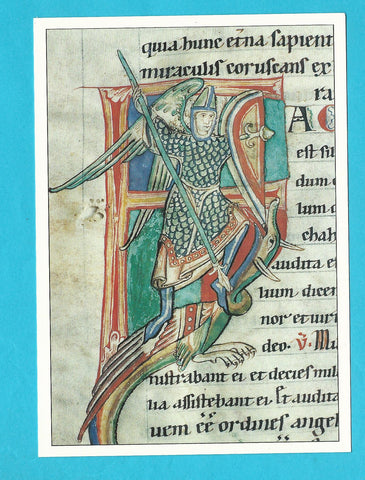 quia hunc et̃na sapient
miraculis coruscans ex
ra
A
est su
dum
lum
den
chah
audita e
lium dicen
nor et uir
deo. ℣. Mu
nistrabant ei et decies mil
ua assistebant ei Et audita
uem ee ordines angel